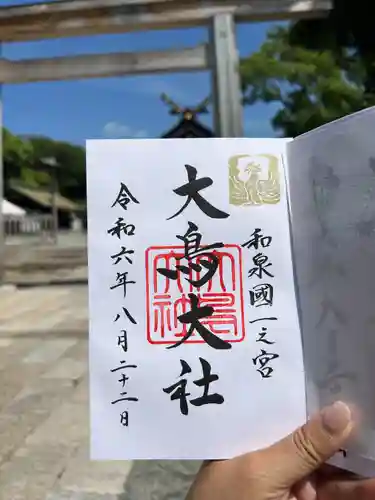 和泉國一之宮
大鳥大社
令和六年八月二十二日